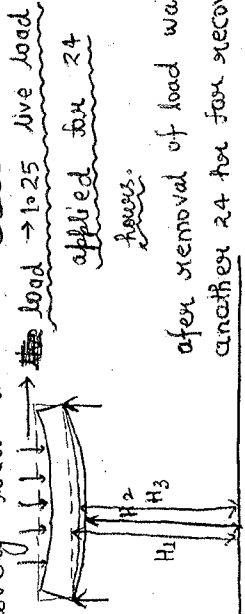 load → 1.25 live load
applied for 24
hours.
afer removal of load wa
another 24 hr for recov
H1
H2
H3